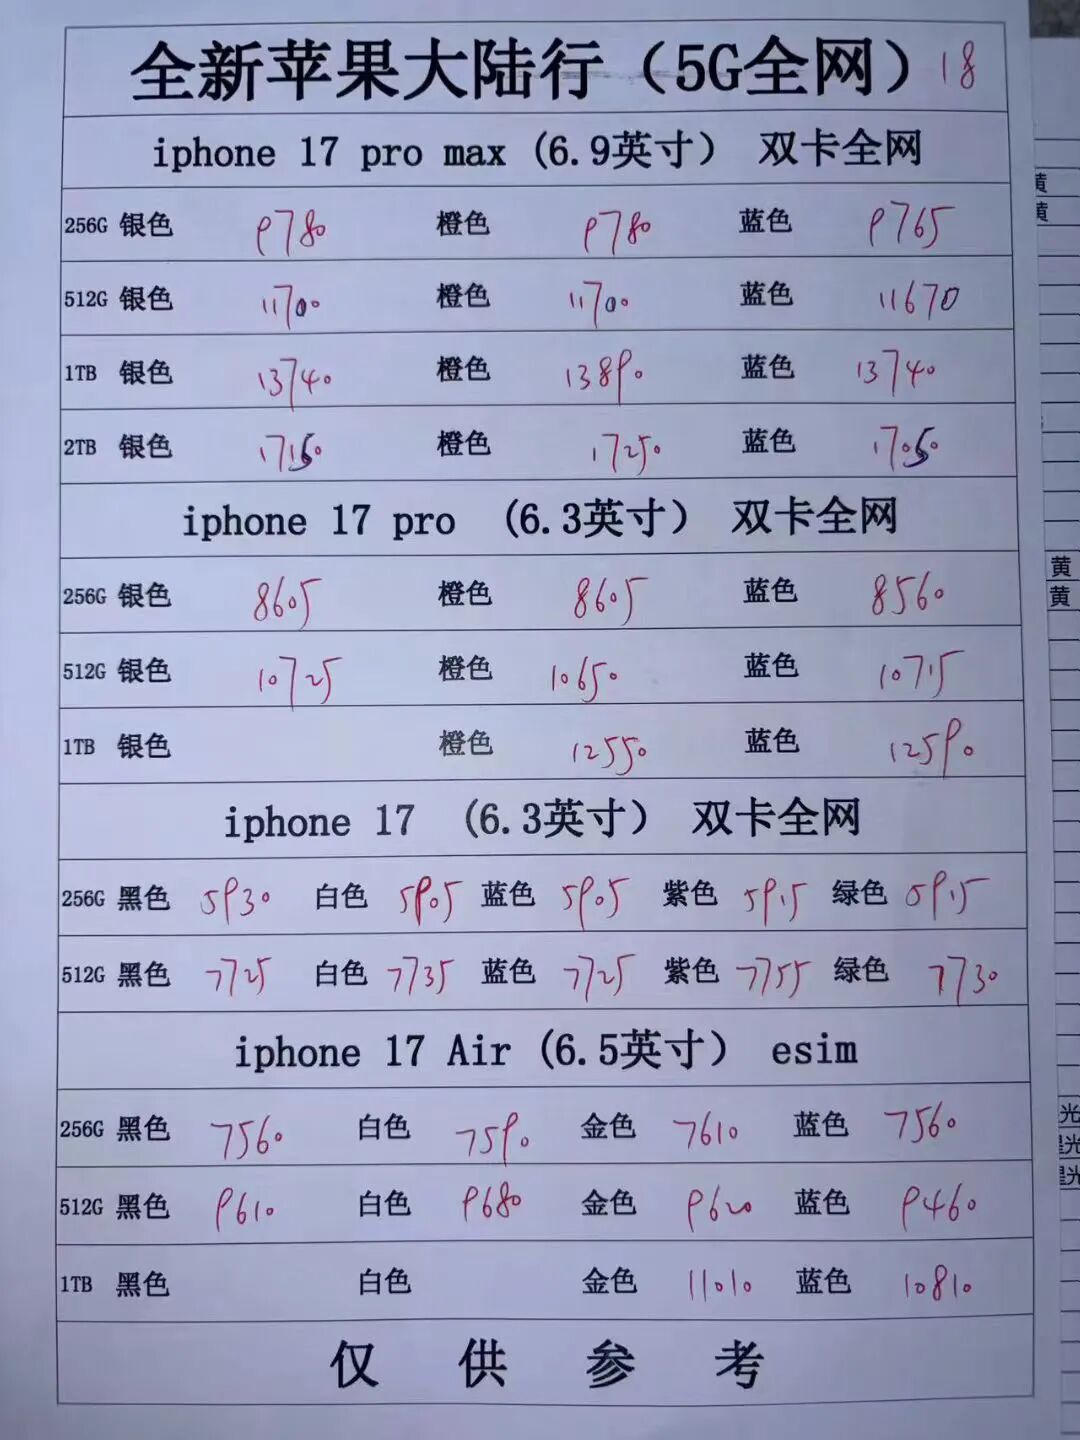 全新苹果大陆行（5G全网）18
iphone 17 pro max (6.9英寸） 双卡全网
256G 银色 9780 橙色 9780 蓝色 9765
512G 银色 11700 橙色 11700 蓝色 11670
1TB 银色 13740 橙色 13890 蓝色 13740
2TB 银色 17150 橙色 17250 蓝色 17050
iphone 17 pro （6.3英寸） 双卡全网
256G 银色 8605 橙色 8605 蓝色 8560
512G 银色 10725 橙色 10650 蓝色 10715
1TB 银色 橙色 12550 蓝色 12590
iphone 17 （6.3英寸） 双卡全网
256G 黑色 5930 白色 5905 蓝色 5905 紫色 5915 绿色 5915
512G 黑色 7725 白色 7735 蓝色 7725 紫色 7755 绿色 7730
iphone 17 Air (6.5英寸） esim
256G 黑色 7560 白色 7590 金色 7610 蓝色 7560
512G 黑色 9610 白色 9680 金色 9620 蓝色 9460
1TB 黑色 白色 金色 11010 蓝色 10810
仅供参考
黄
黄
黄
黄
光
光
光